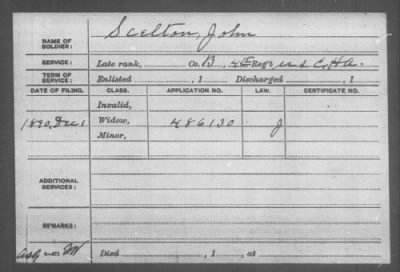 NAME OF SOLDIER: Scelton, John
SERVICE: Late rank, Co. B, 4 Reg't U S C, H A.
TERM OF SERVICE: Enlisted , 1 Discharged , 1
DATE OF FILING. CLASS. APPLICATION NO. LAW. CERTIFICATE NO.
Invalid,
1890, Dec 1 Widow, 486130 J
Minor,
ADDITIONAL SERVICES:
REMARKS:
Died , 1 , at